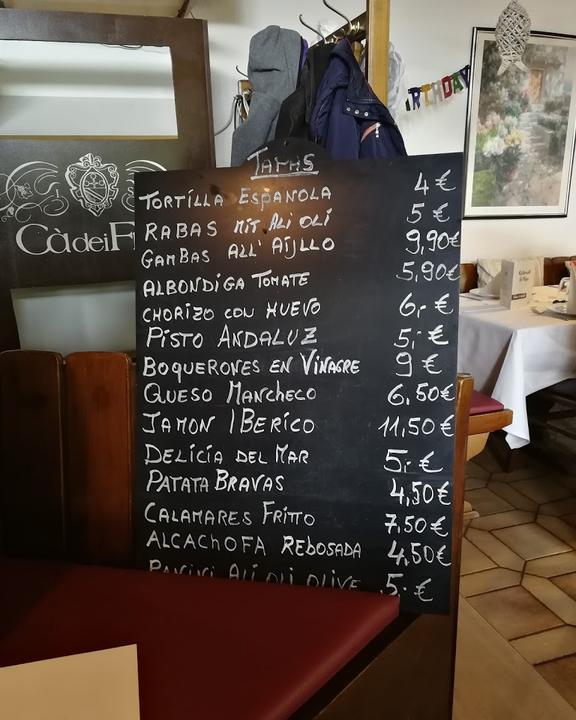 TAPAS
TORTILLA ESPANOLA 4 €
RABAS MIT ALI OLI 5 €
GAMBAS ALL' AIJLLO 9,90€
ALBONDIGA TOMATE 5,90€
CHORIZO CON HUEVO 6,- €
PISTO ANDALUZ 5,- €
BOQUERONES EN VINAGRE 9 €
QUESO MANCHECO 6,50€
JAMON IBERICO 11,50€
DELICIA DEL MAR 5,- €
PATATA BRAVAS 4,50€
CALAMARES FRITTO 7,50€
ALCACHOFA REBOSADA 4,50€
ALI OLI OLIVE 5,- €
Cà dei F
RTHDAY